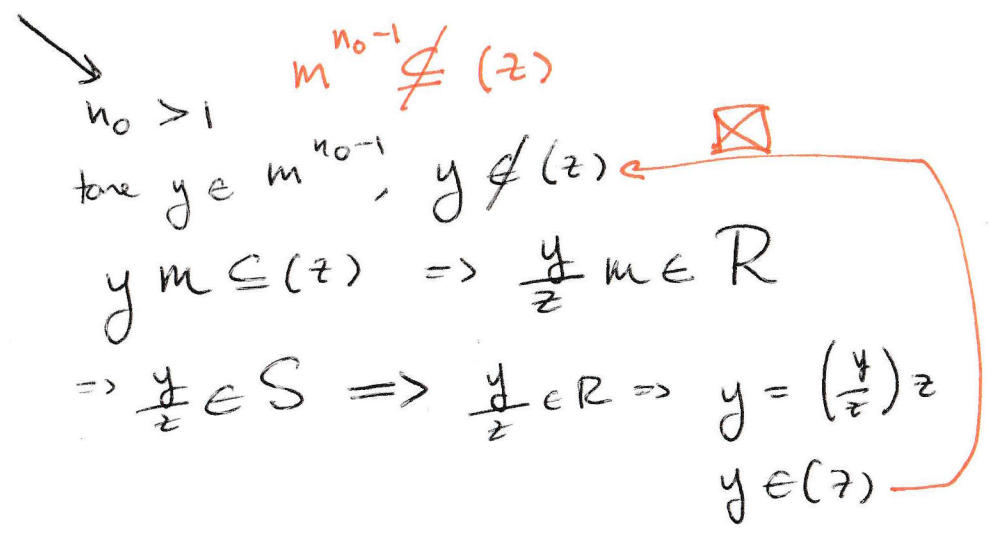 m^{n₀-1} ⊈ (z)
n₀ > 1
take y ∈ m^{n₀-1}, y ∉ (z)
y m ⊆ (z) => y/z m ∈ R
=> y/z ∈ S => y/z ∈ R => y = (y/z) z
y ∈ (z)